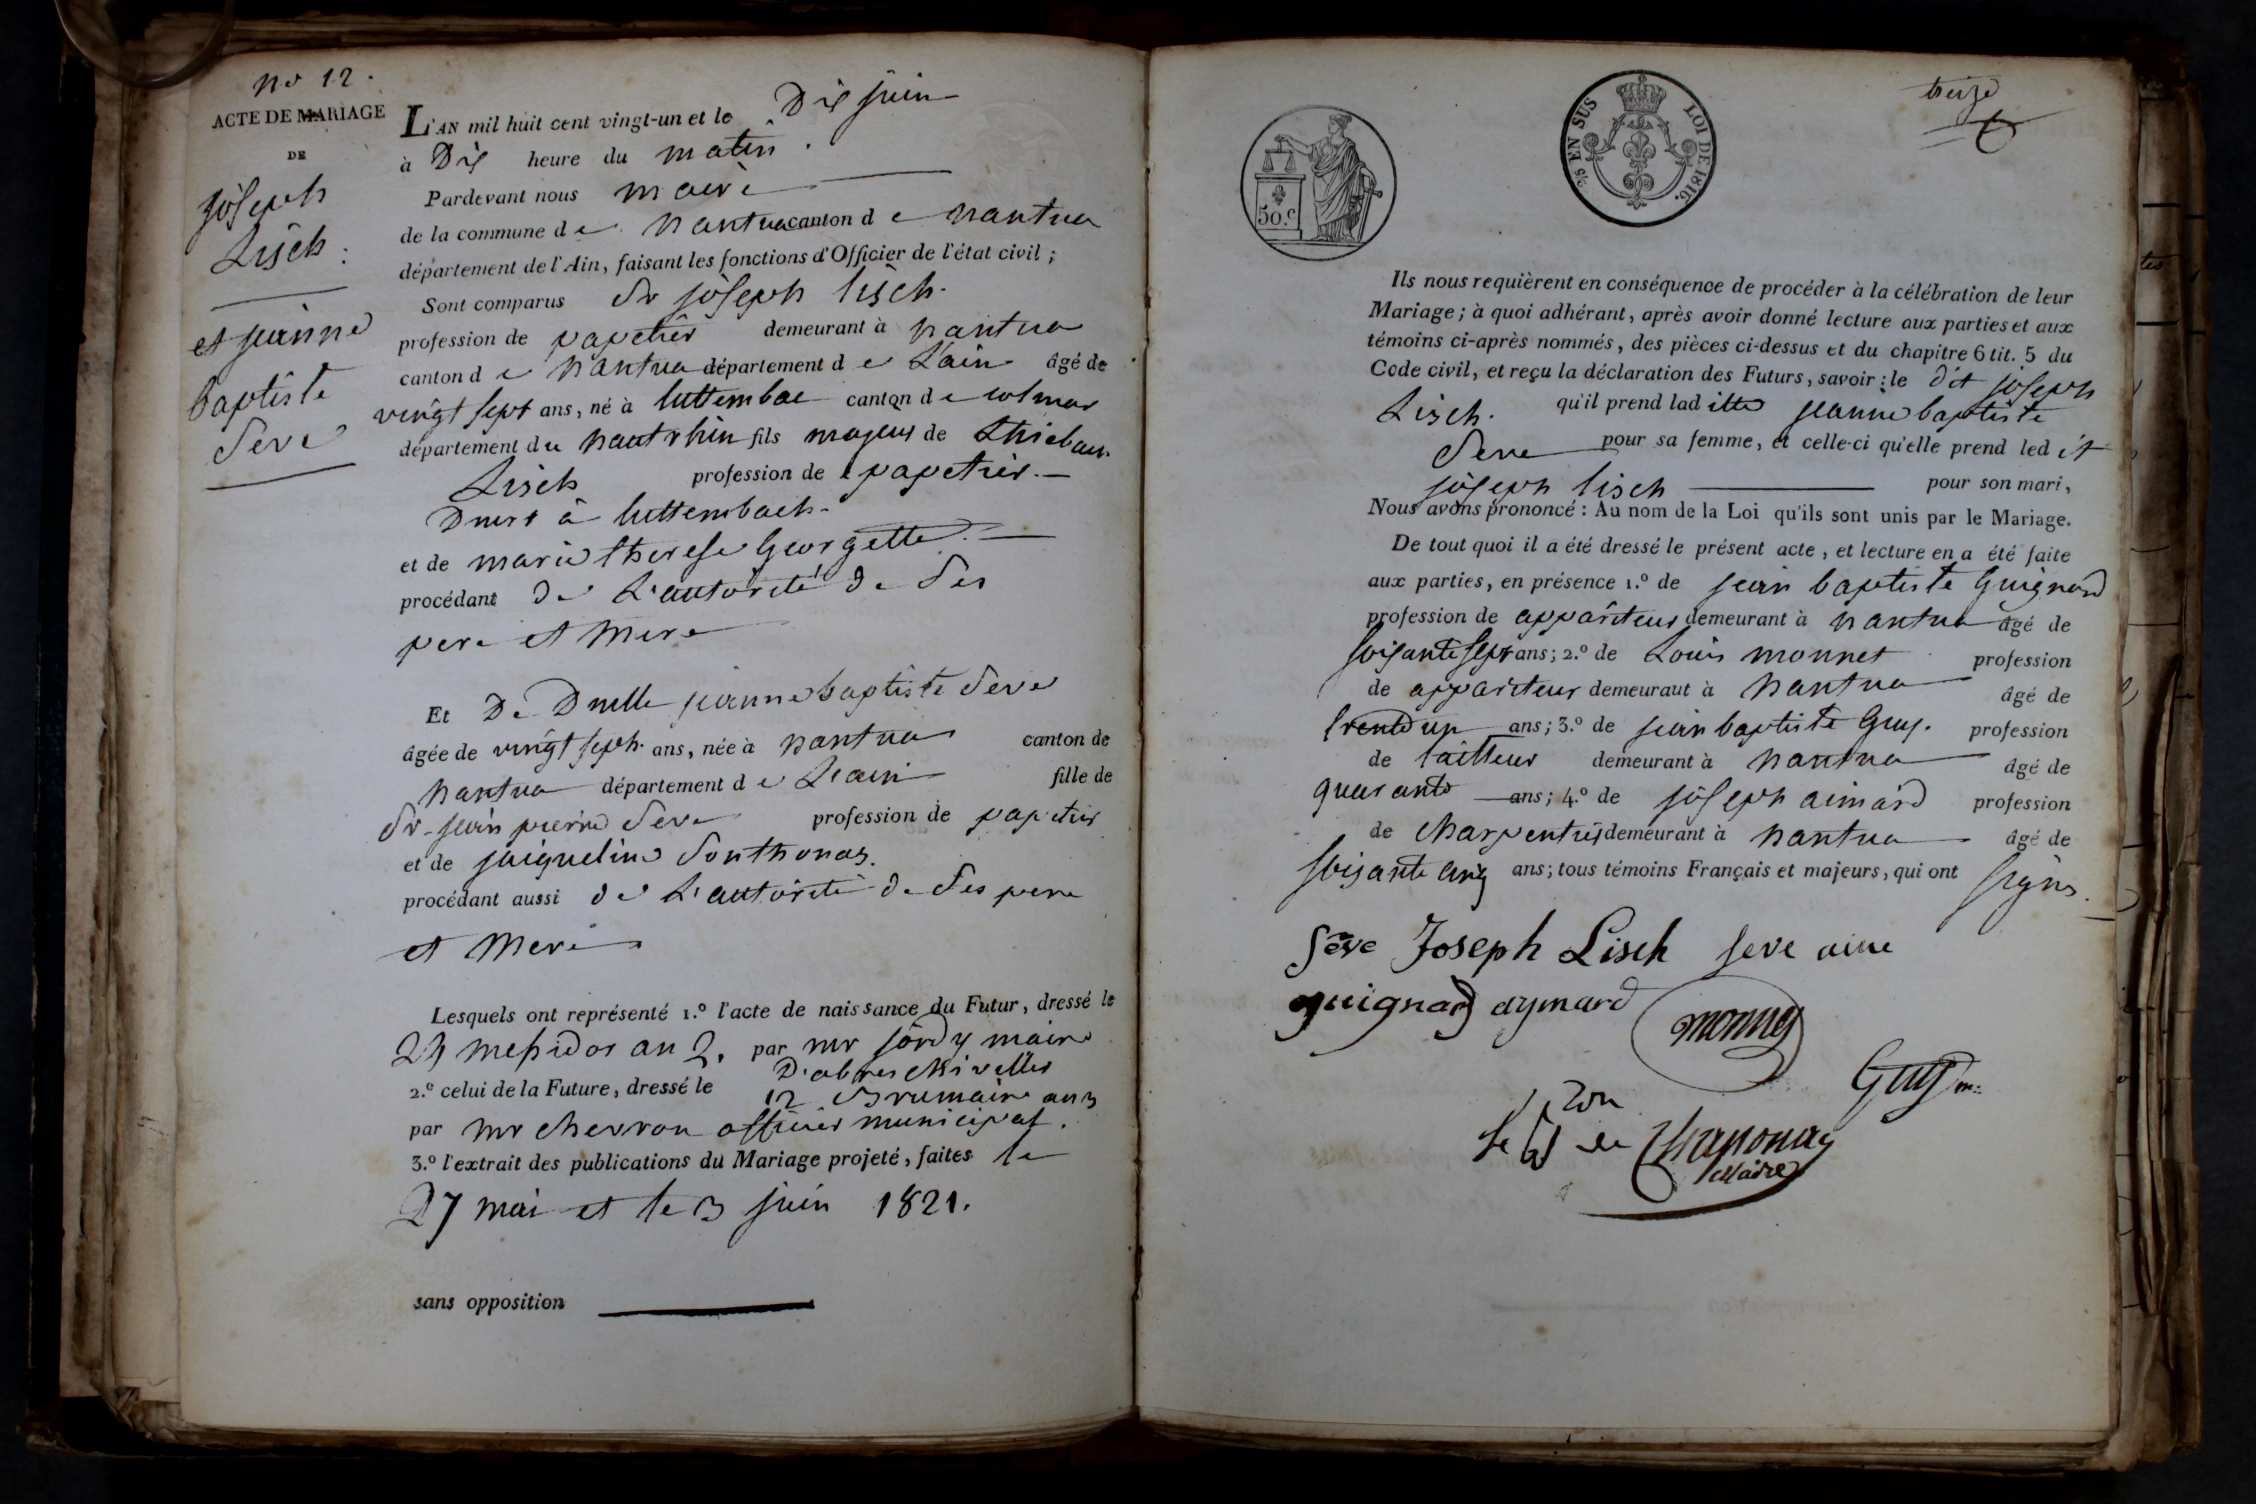 no 12.
ACTE DE MARIAGE
DE
joseph
Lisch.
et jeanne
baptiste
Seve
L'AN mil huit cent vingt-un et le Dix juin
à Dix heure du matin.
Pardevant nous maire
de la commune de nantua canton de nantua
département de l'Ain, faisant les fonctions d'Officier de l'état civil;
Sont comparus Sr joseph lisch.
profession de papetier demeurant à nantua
canton de nantua département de L'ain âgé de
vingt sept ans, né à luttembac canton de colmar
département du haut rhin fils majeur de thiebaut
Lisch profession de papetier.
Dmrt à luttembach.
et de marie therese Georgette.
procédant de L'autorité de Ses
pere et mere
Et De Dmlle jeanne baptiste Seve
âgée de vingt sept ans, née à nantua canton de
nantua département de L'ain fille de
Sr jean pierre Seve profession de papetier
et de jacqueline Sonthonas.
procédant aussi de L'autorité de Ses pere
et mere
Lesquels ont représenté 1.º l'acte de naissance du Futur, dressé le
24 messidor an 2. par mr jordy maire
D'abreschviller
2.º celui de la Future, dressé le 12 Brumaire an 3
par mr chevron officier municipal.
3.º l'extrait des publications du Mariage projeté, faites le
27 mai et le 3 juin 1821.
sans opposition
50.c
5/5 EN SUS LOI DE 1816.
treize
Ils nous requièrent en conséquence de procéder à la célébration de leur
Mariage; à quoi adhérant, après avoir donné lecture aux parties et aux
témoins ci-après nommés, des pièces ci-dessus et du chapitre 6 tit. 5 du
Code civil, et reçu la déclaration des Futurs, savoir: le dit joseph
Lisch. qu'il prend lad itte jeanne baptiste
Seve pour sa femme, et celle-ci qu'elle prend led it
joseph lisch pour son mari,
Nous avons prononcé: Au nom de la Loi qu'ils sont unis par le Mariage.
De tout quoi il a été dressé le présent acte, et lecture en a été faite
aux parties, en présence 1.º de jean baptiste Guignard
profession de appariteur demeurant à nantua âgé de
soixante sept ans; 2.º de Louis monnet profession
de appariteur demeuraut à nantua âgé de
trente un ans; 3.º de jean baptiste Guy. profession
de tailleur demeurant à nantua âgé de
quarante ans; 4.º de joseph aimard profession
de charpentier demeurant à nantua âgé de
soixante cinq ans; tous témoins Français et majeurs, qui ont signés.
Sève Joseph Lisch seve aine
guignard aymard
monnet
Guy
le de
Maire